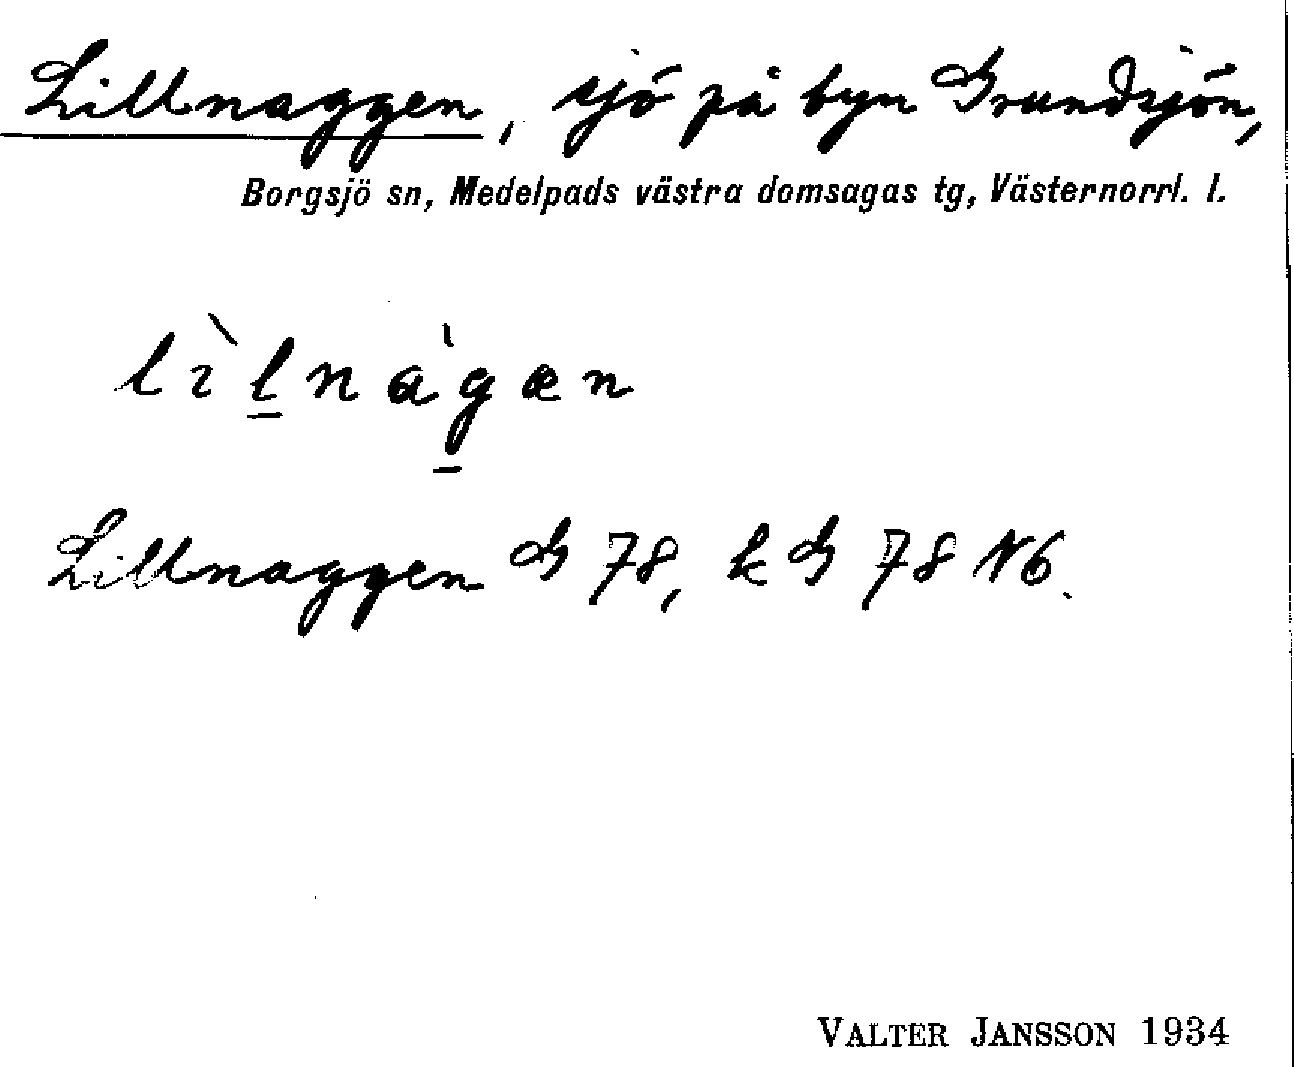 Lillnaggen, sjö på byn Grundsjön,
Borgsjö sn, Medelpads västra domsagas tg, Västernorrl. l.
lìl̲nàg̲æn
Lillnaggen G 78, k G 78 N6.
VALTER JANSSON 1934